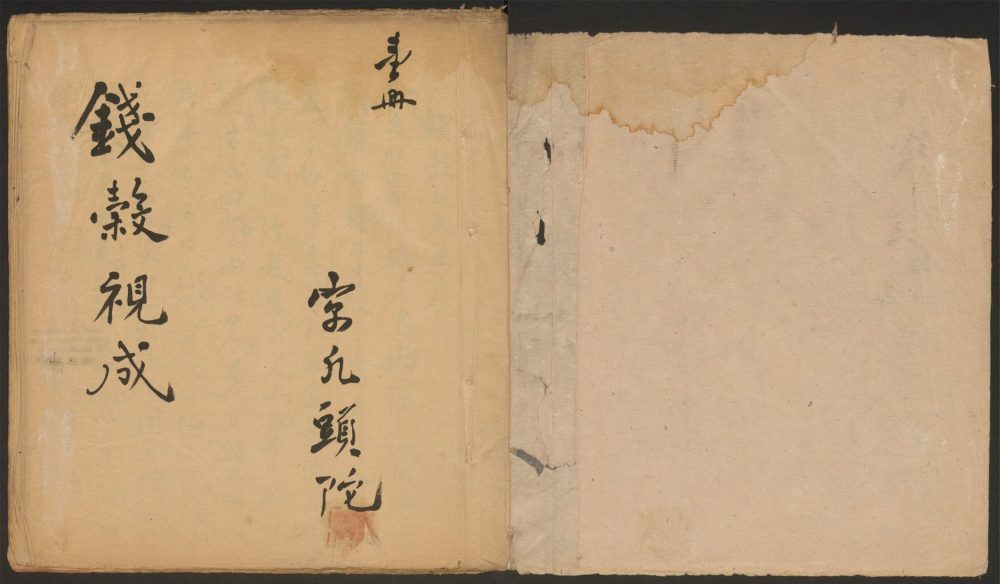 壹冊
字頭陀
錢榖視成